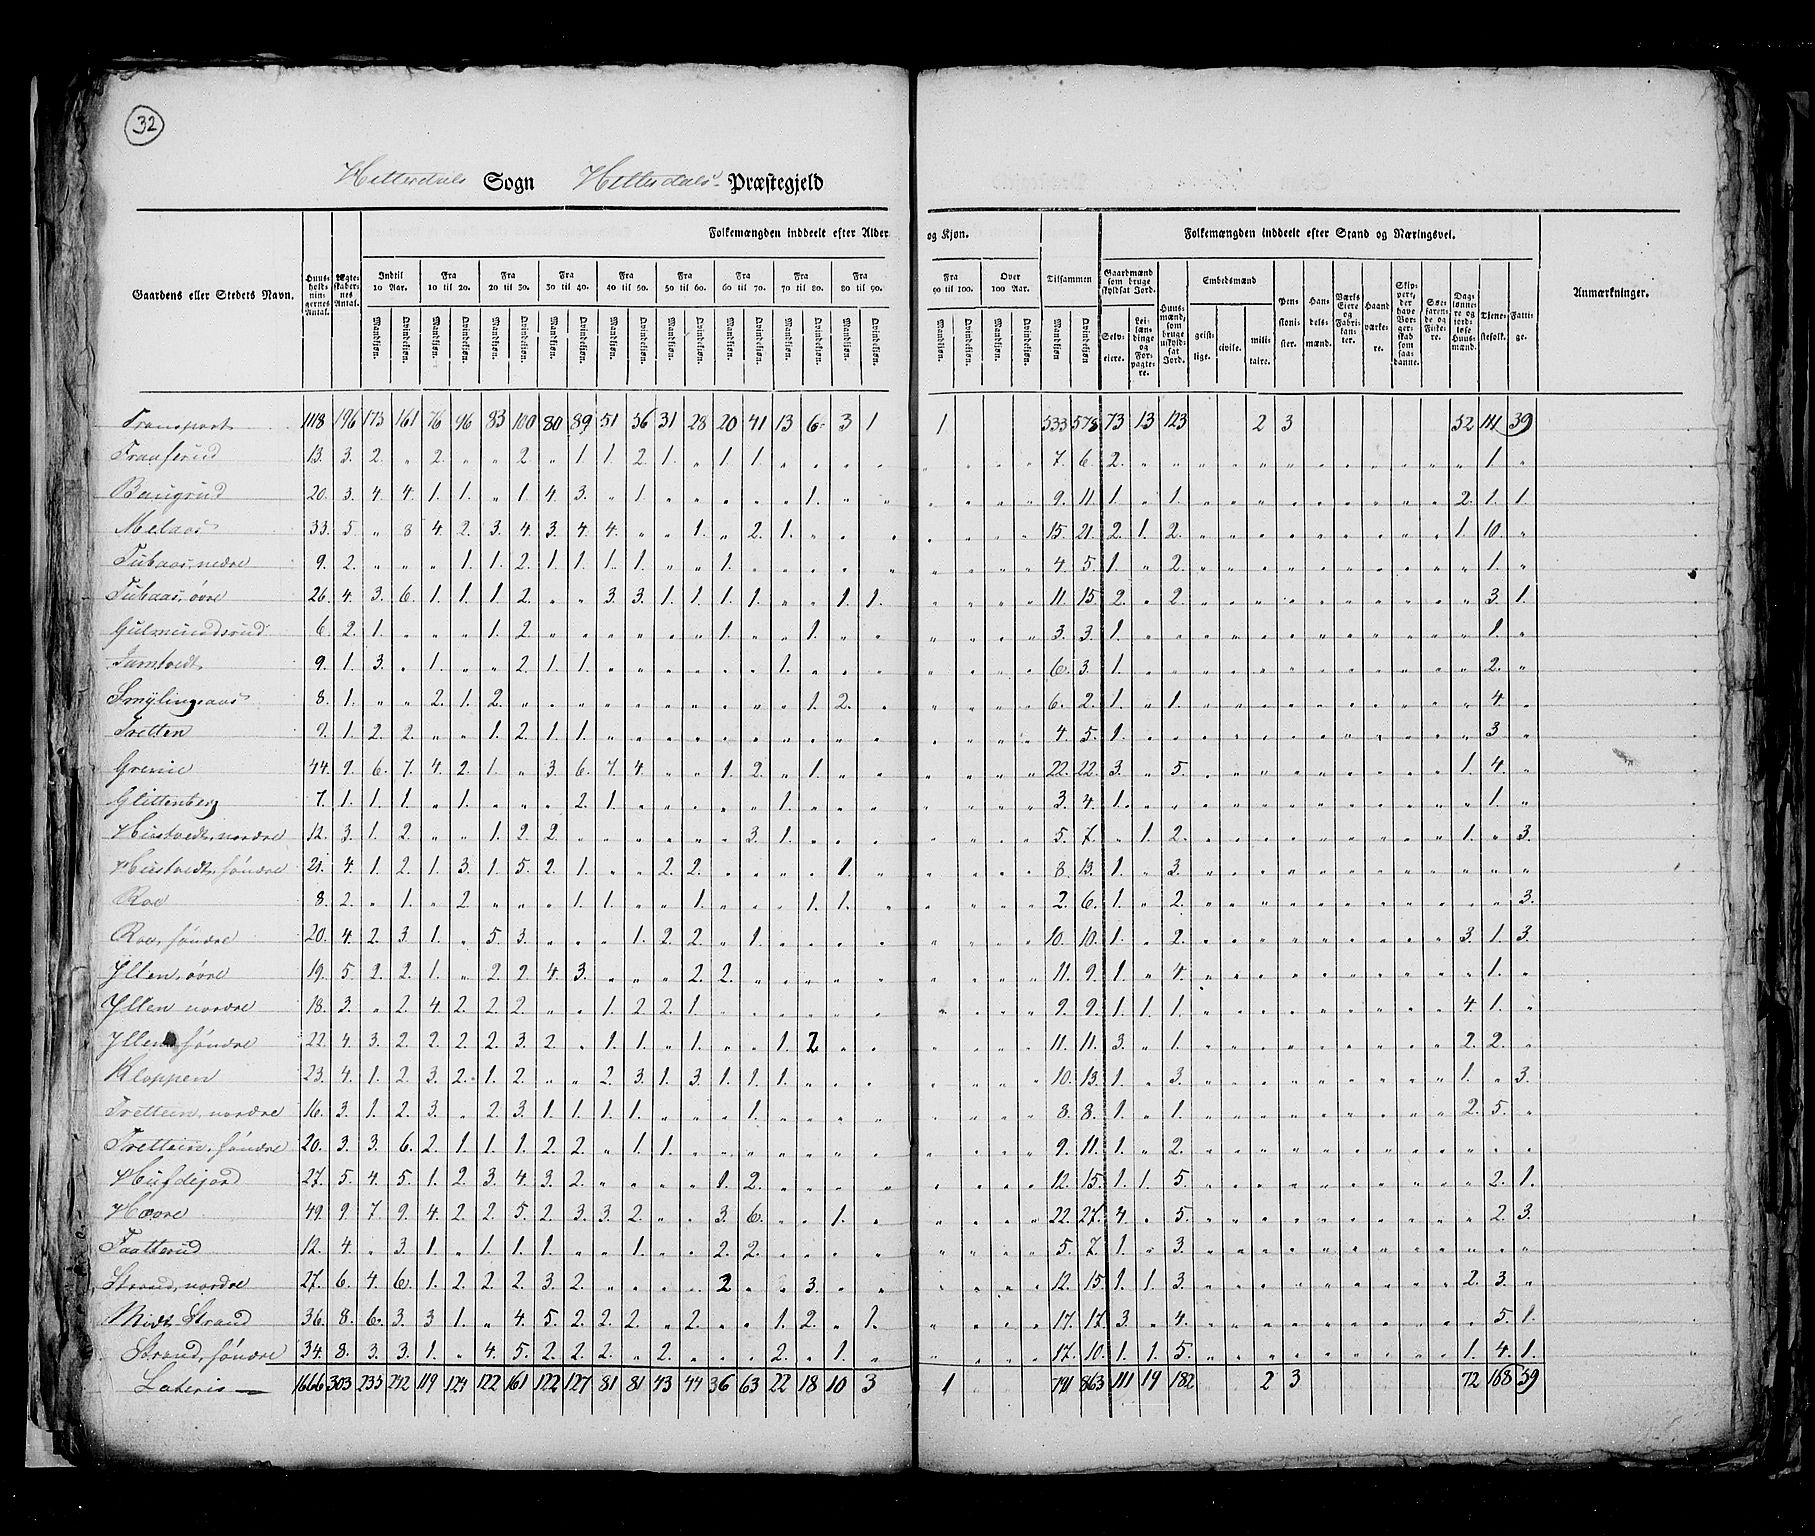 32
Hitterdals Sogn Hitterdals Præstegjeld
Folkemængden inddeelt efter Alder og Kjøn. Folkemængden inddeelt efter Stand og Næringsvei.
Gaardens eller Stedets Navn. Huus-holdnin-gernes Antal. Ægte-skaber-nes Antal. Indtil 10 Aar. Fra 10 til 20. Fra 20 til 30. Fra 30 til 40. Fra 40 til 50. Fra 50 til 60. Fra 60 til 70. Fra 70 til 80. Fra 80 til 90. Fra 90 til 100. Over 100 Aar. Tilsammen Gaardmænd som bruge skyldsat Jord. Huusmænd, som bruge uskyldsat Jord. Embedsmænd Pensionister. Handelsmænd. Værks Eiere og Fabrikanter. Haandværkere. Skippere, der have Borgerstad som saadanne. Søefarende og Fiskere. Daglønnere og jordløse Huusmænd. Tjenestefolk. Fattige. Anmærkninger.
Mandkjøn. Qvindekjøn. Mandkjøn. Qvindekjøn. Mandkjøn. Qvindekjøn. Mandkjøn. Qvindekjøn. Mandkjøn. Qvindekjøn. Mandkjøn. Qvindekjøn. Mandkjøn. Qvindekjøn. Mandkjøn. Qvindekjøn. Mandkjøn. Qvindekjøn. Mandkjøn. Qvindekjøn. Mandkjøn. Qvindekjøn. Mandkjøn Qvindekjøn. Selveiere. Leilændinge og Forpagtere. geistlige. civile. militaire.
Transport 1118 196 173 161 76 96 83 100 80 89 51 56 31 28 20 41 13 6 3 1 1 533 578 73 13 123 2 3 52 111 39
Traaserud 13. 3. 2. " 2. " " 2. " 1. 1. 2. 1. " 1. 1. 7. 6. 2. 1.
Baugrud 20. 3. 4. 4. 1. 1. " 1. 4. 3. " 1. 1. 9. 11. 1. " 1. 2. 1. 1.
Melaas 33. 5. " 8 4. 2. 3. 4. 3. 4. 4. " " 1. " 2. 1. 15. 21. 2. 1. 2. 1. 10.
Tubaas, nedre 9. 2. " " " 1. 1. 2. 1. 1. 1. 1. " " 1. 4. 5. 1. " 2. 1.
Tubaas, øvre 26. 4. 3. 6. 1. 1. 1. 2. " " 3. 3. 1. 1. 1. 1. " " 1. 1. 11. 15. 2. " 2. 3. 1.
Gulmundsrud 6. 2. 1. " " " 1. 2. 1. " " 1. 3. 3. 1. 1.
9. 1. 3. " 1. " " 2. 1. 1. 1. 6. 3. 1. 2.
Smylingeaas 8. 1. " " 2. 1. 2. 1. 2. 6. 2. 1. " 1. 4.
Tretten 9. 1. 2. 2. " " 1. 2. 1. 1. 4. 5. 1. 3.
Grenie 44. 9. 6. 7. 4. 2. 1. " 3. 6. 7. 4. " " 1. 2. " 1. 22. 22. 3. " 5. 1. 4.
Glittenberg 7. 1. 1. 1. " 1. " " " 2. 1. 1. 3. 4. 1. 1.
Hustvedt, nordre 12. 3. 1. 2. " " 1. 2. 2. 3. 1. 5. 7. " 1. 2. 1. " 3.
Hustvedt, søndre 21. 4. 1. 2. 1. 3. 1. 5. 2. 1. " " 2. 2. 1. 8. 13. 1. " 3.
Roe 8. 2. " 1. " 2. " " " 1. 1. " " 1. " " " 1. 1. 2. 6. 1. " 2. 3.
Roe, søndre 20. 4. 2. 3. 1. " 5. 3. " " " 1. 2. 2. " 1. 10. 10. 1. " 2. 3. 1. 3.
Yllen, øvre 19. 5. 2. 2. 1. " 2. 2. 4. 3. " " " 2. 2. 11. 9. 1. " 4. 1.
Yllen nordre 18. 3. " 2. 4. 2. 2. 2. " " 1. 2. 2. 1 9. 9. 1. 1. 1. 4. 1.
Yllen søndre 22. 4. 3. 2. 2. 2. 2. 3. 2. " 1. 1. " 1. " " 1. 2 11. 11. 3. " 1. 2. 2.
Kloppen 23. 4. 1. 2. 3. 2. 1. 2. " " 2. 3. 1. 3. 1. 1. 1. 10. 13. 1. " 3. 1. " 3.
Trettein, nordre 16. 3. 1. 2. 3. " 2. 3. 1. 1. 1. 1. 1. 8. 8. 1. " 1. 2. 5.
Trettein, søndre 20. 3. 3. 6. 2. 1. 1. 1. 2. 2. " 1. 1. 9. 11. 1. " 2.
Husdejord 27. 5. 4. 5. 1. 2. 3. 4. 3. 2. 1. 2. 12. 15. 1. 1. 5. 2. 1.
Hovre 49. 9 7 9. 4. 2. 2. 5. 2. 3. 3. 2. " " 3. 6. " " 1. 22. 27. 4. " 5. 2. 3.
Taatterud 12. 4. " 3. 1. " 1. 1. 1. " " 1. " " 2. 2. 5. 7. 1. " 3.
Strand, nordre 27. 6. 4. 6. 1. 2. 2. 2. 3. 2. 2 " " 3. 12. 15. 1. 1. 3. 2. 3.
Midt Strand 36. 8. 6. 3. 3 1. " 4. 5. 2. 2. 2. " 2. " " 1. 2. " 1. 17. 17. 3. " 4. 5. 1.
Strand, søndre 34. 8. 3. 3. 1. " 4. 5. 2. 2. 2. " 2. " " " 2. " 1. 17. 10. 1. 1. 5. 1. 4. 1.
Lateris 1666 303 233 242 119 124 122 161 122 127 81 81 43 44 36 63 22 18 10 3 1 791 863 111 19 182 2 3 72 168 59